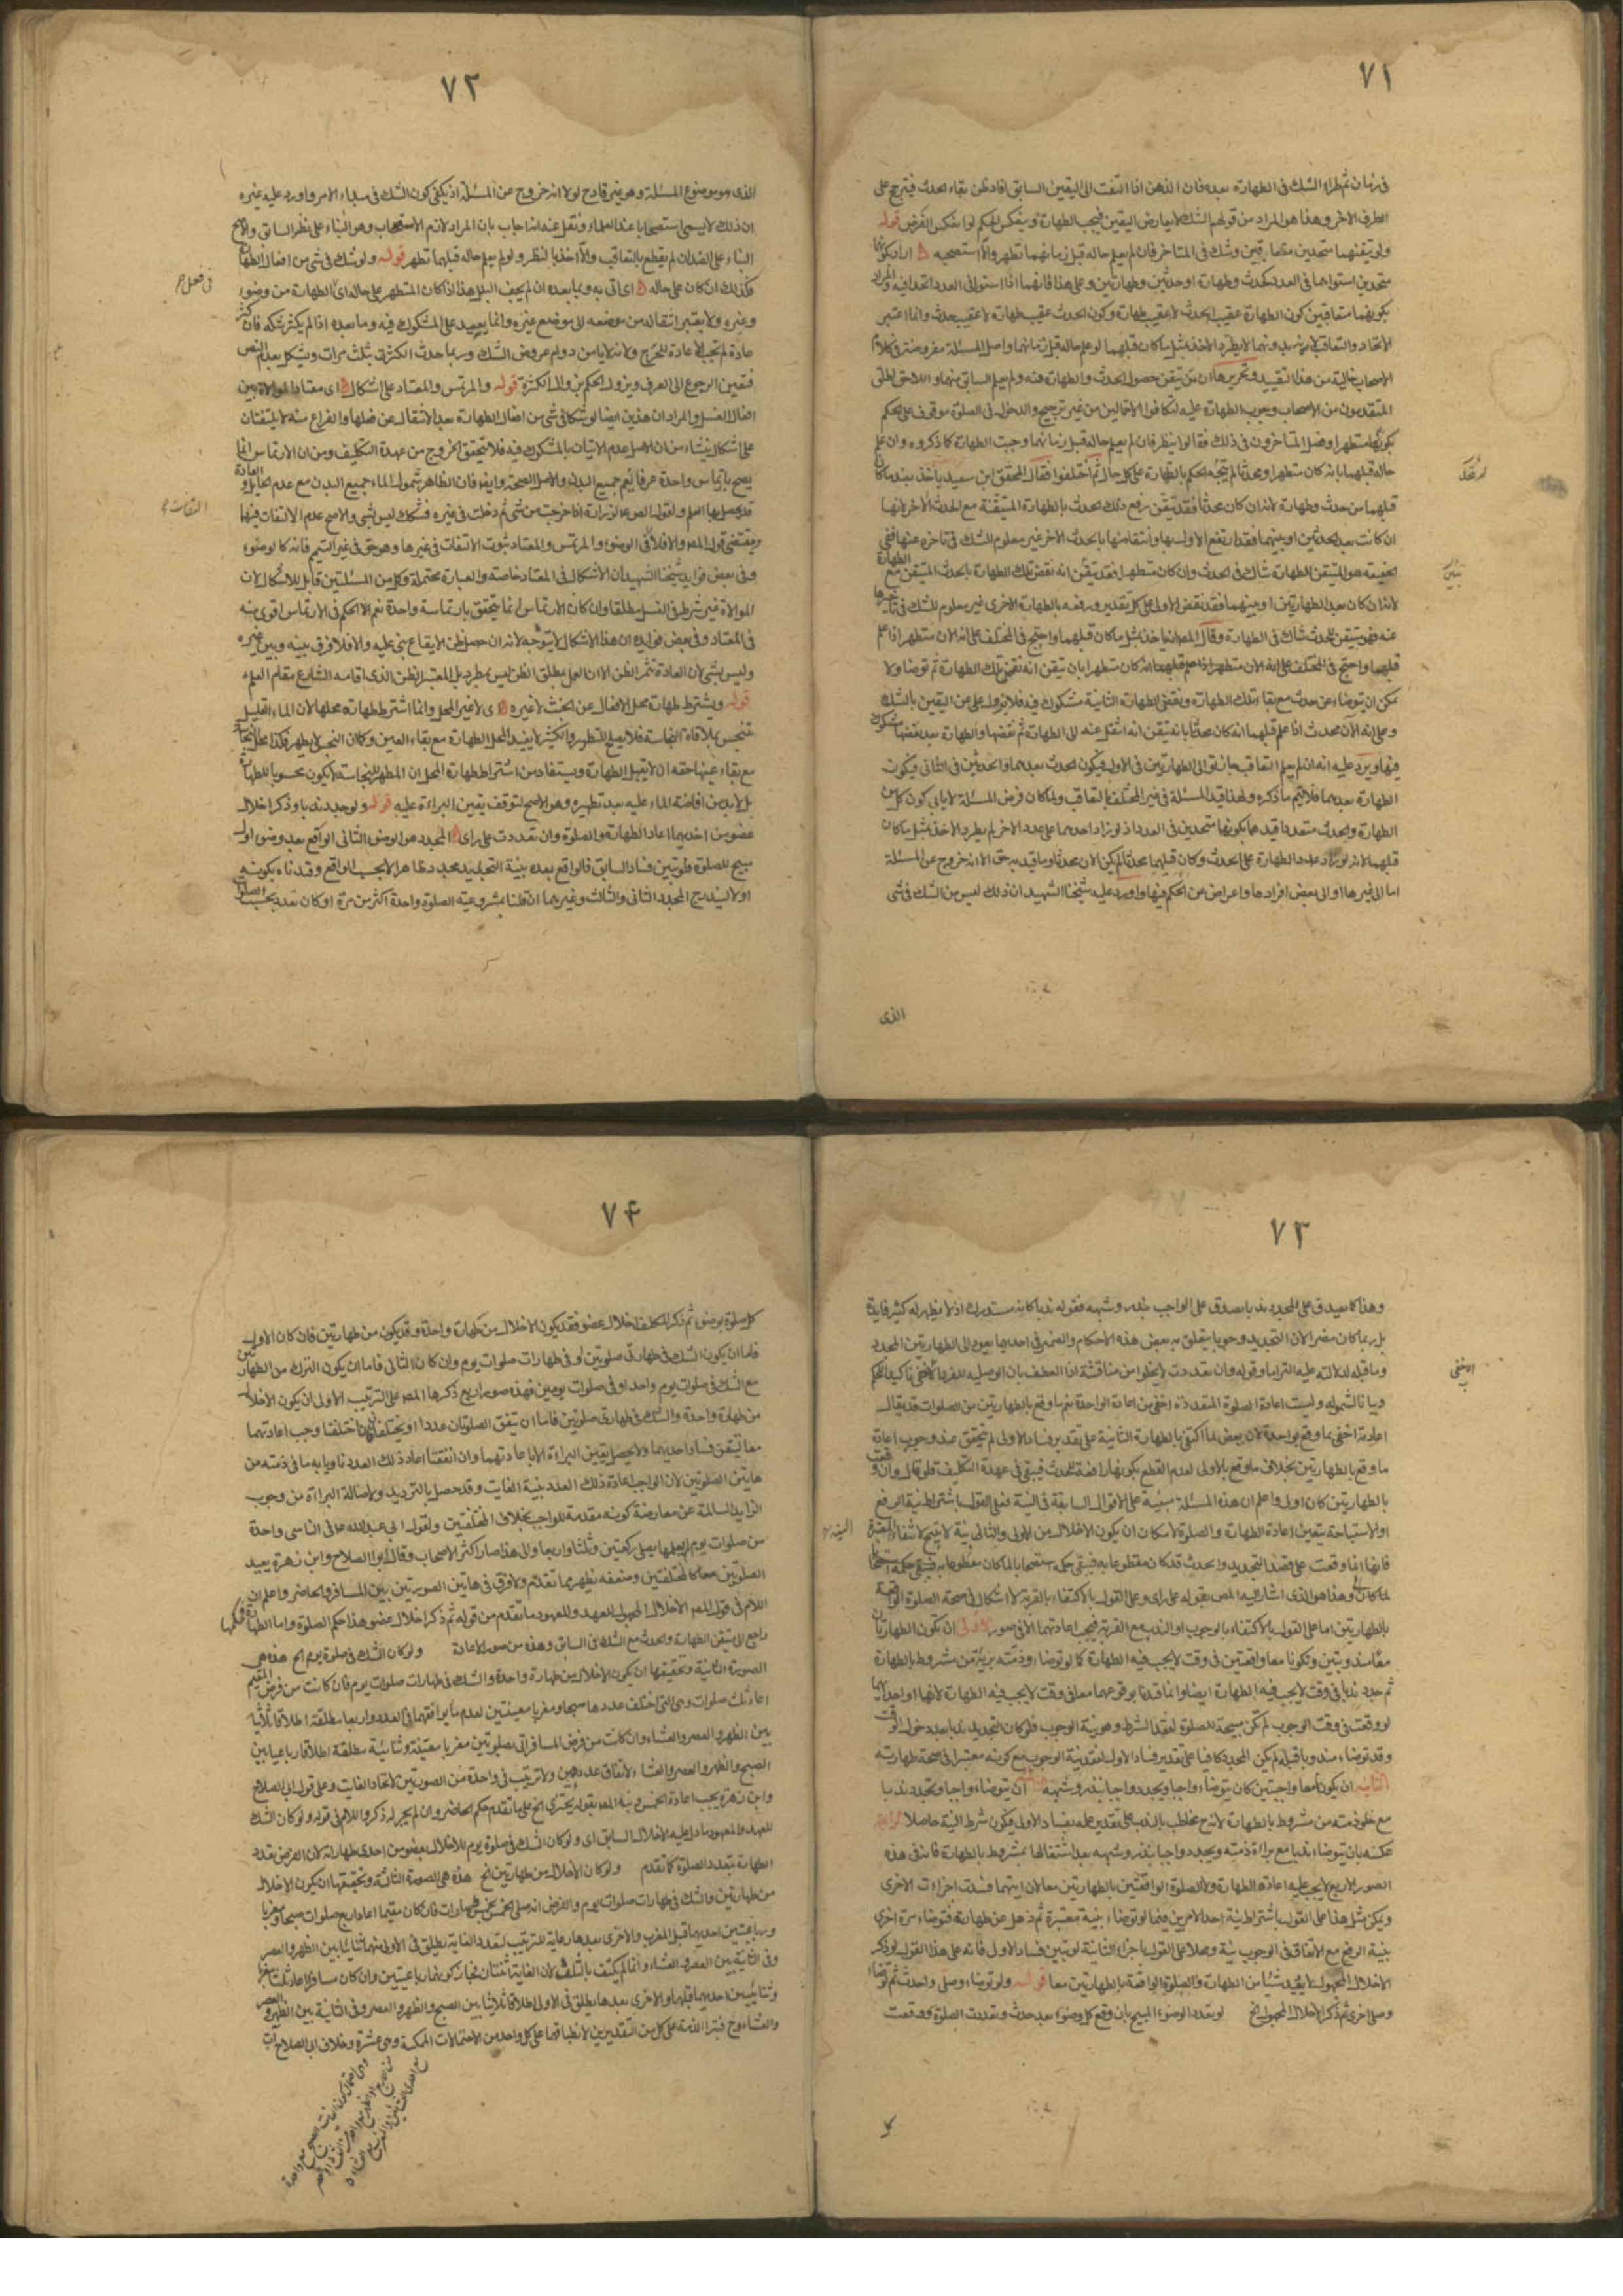 ٧١
فى زمان ثم طراء الشك فى الطهارة بعده فان الذهن اذا التفت الى اليقين السابق افاد ظن بقاء الحدث فيترجح على
الطرف الاخر وهذا هو المراد من قولهم الشك لا يعارض اليقين فيجب الطهارة وينعكس الحكم لو انعكس الفرض قوله
ولو تيقنهما متحدين متعاقبين وشك فى المتاخر فان لم يعلم حاله قبل زمانهما تطهر والا استصحبه
متحدين استواءهما فى العدد كحدث وطهارة او حدثين وطهارتين وعلى هذا فانهما اذا استويا فى العدد اتحدا فيه والمراد
بكونهما متعاقبين كون الطهارة عقيب الحدث لا عقيب طهارة وكون الحدث عقيب طهارة لا عقيب حدث وانما اعتبر
الاتحاد والتعاقب لانه بدونهما لا يطرد الاخذ بمثل ما كان قبلهما لو علم حاله قبل زمانهما واصل المسئلة مفروضة فى كلام
الاصحاب خالية من هذا التقييد وتحريرها ان من تيقن حصول الحدث والطهارة منه ولم يعلم السابق منهما واللاحق اطلق
المتقدمون من الاصحاب وجوب الطهارة عليه لتكافؤ الاحتمالين من غير ترجيح والدخول فى الصلوة موقوف على الحكم
بكونه متطهرا وفصل المتاخرون فى ذلك فقالوا ينظر فان لم يعلم حاله قبل زمانهما وجبت الطهارة كما ذكروه وان علم
حاله قبلهما بانه كان متطهرا او محدثا لم يتجه الحكم بالطهارة على كل حال ثم اختلفوا فقال المحقق ابن سعيد ياخذ بضد ما كان
قبلهما من حدث وطهارة لانه ان كان محدثا فقد تيقن رفع ذلك الحدث بالطهارة المتيقنة مع الحدث الاخر لانها
ان كانت بعد الحدثين او بينهما فقد ارتفع الاول بها وانتقاضها بالحدث الاخر غير معلوم للشك فى تاخره عنها ففى
الحقيقة هو المتيقن للطهارة شاك فى الحدث وان كان متطهرا فقد تيقن انه نقض تلك الطهارة بالحدث المتيقن مع الطهارة
لانه ان كان بعد الطهارتين او بينهما فقد نقض الاولى على كل تقدير ورفعه بالطهارة الاخرى غير معلوم للشك فى تاخرها
عنه فهو متيقن للحدث شاك فى الطهارة وقال المص انه ياخذ بمثل ما كان قبلهما واحتج فى المختلف على انه الان متطهر اذا علم
قبلهما انه كان متطهرا بان تيقن انه نقض تلك الطهارة ثم توضأ ولا
يمكن ان يتوضاء عن حدث مع بقاء تلك الطهارة ونقض الطهارة الثانية مشكوك فيه فلا يزول عن اليقين بالشك
وعلى انه الآن محدث اذا علم قبلهما انه كان محدثا بانه تيقن انه انتقل عنه الى الطهارة ثم نقضها والطهارة بعد نقضها مشكوك
فيها ويرد عليه انه ان لم يعلم التعاقب جاز توالى الطهارتين فى الاول فيكون الحدث بعدهما والحدثين فى الثانى فيكون
الطهارة بعدهما فلا يتم ما ذكره ولهذا قيد المسئلة فى غير المختلف بالتعاقب ولما كان فرض المسئلة لا يابى كون كل من
الطهارة والحدث متعددا قيدهما بكونهما متحدين فى العدد اذ لو زاد احدهما على عدد الاخر لم يطرد الاخذ بمثل ما كان
قبلهما لانه لو زاد عدد الطهارة على الحدث وكان قبلهما محدثا لم يكن الان محدثا وما قيد به حق الا انه خروج عن المسئلة
اما الى غيرها او الى بعض افرادها واعراض عن الحكم فيها واورد عليه شيخنا الشهيد ان ذلك ليس من الشك فى شئ
الذى
٧٢
الذى هو موضوع المسئلة وهو غير قادح لولا انه خروج عن المسئلة اذ يكفى كون الشك فى مبداء الامر واورد عليه غيره
ان ذلك لا يسمى استصحابا عند العلماء ونقل عنه انه اجاب بان المراد لازم الاستصحاب وهو البناء على نظير السابق والاصح
البناء على الضد ان لم يقطع بالتعاقب والا اخذ بالنظير ولو لم يعلم حاله قبلهما تطهر قوله ولو شك فى شئ من افعال الطهارة
فكذلك ان كان على حاله اى اتى به وبما بعده ان لم يجف البلل هذا اذا كان المتطهر على حاله اى الطهارة من وضوء
وغيره ولا يعتبر انتقاله من موضعه الى موضع غيره وانما يعيد على المشكوك فيه وما بعده اذا لم يكثر شكه فان كثر
عادة لم يجب الاعادة للحرج ولانه لا يامن دوام عروض الشك وربما حدث الكثرة بثلث مرات ويشكل بعدم النص
فتعين الرجوع الى العرف ويزول الحكم بزوال الكثرة قوله والمرتمس والمعتاد على اشكال اى معتاد الموالاة بين
افعال الغسل والمراد ان هذين ايضا لو شكا فى شئ من افعال الطهارة بعد الانتقال عن فعلها والفراغ منه لا يلتفتان
على اشكال ينشاء من ان الاصل عدم الاتيان بالمشكوك فيه فلا يتحقق الخروج من عهدة التكليف ومن ان الارتماس انما
يصح بارتماس واحدة عرفا يعم جميع البدن والاصل الصحة وايضا فان الظاهر شمول الماء جميع البدن مع عدم الحايل والعادة
قد يحصل بها العلم ولقول الص ع لزرارة اذا خرجت من شئ ثم دخلت فى غيره فشكك ليس بشئ والاصح عدم الالتفات فيهما
ومقتضى قول المص والا فلا فى الوضوء والمرتمس والمعتاد ثبوت الالتفات فى غيرها وهو حق فى غير التيمم فانه كالوضوء
وفى بعض فوايد شيخنا الشهيد ان الاشكال فى المعتاد خاصة والعبارة محتملة وكل من المسئلتين قابل للاشكال لان
الموالاة غير شرط فى الغسل مطلقا وان كان الارتماس انما يتحقق بارتماسة واحدة نعم الحكم فى الارتماس اقوى منه
فى المعتاد وفى بعض فوايده ان هذا الاشكال لا يتوجه لانه ان حصل ظن الايقاع بنى عليه والا فلا فرق بينه وبين غيره
وليس بشئ لان العادة تثمر الظن الا ان العمل بمطلق الظن ليس بمطرد بل المعتبر الظن الذى اقامه الشارع مقام العلم
قوله ويشترط طهارة محل الافعال عن الخبث لا غيره اى لا غير المحل وانما اشترط طهارة محلها لان الماء القليل
ينجس بملاقاة النجاسة فلا يصلح للتطهير والكثير لا يفيد المحل الطهارة مع بقاء العين وكما ان النجس لا يطهر فكذا محل النجاسة
مع بقاء عينها حقه ان لا يقبل الطهارة ويستفاد من اشتراط طهارة المحل ان المطهر للنجاسة لا يكون محسوبا للطهارة
بل لا بد من افاضة الماء عليه بعد تطهيره وهو الاصح لتوقف يقين البراءة عليه قوله ولو جدد ندبا وذكر اخلال
عضو من احديهما اعاد الطهارة والصلوة وان تعددت على راى المجدد هو الوضوء الثانى الواقع بعد وضوء اول
مبيح للصلوة فلو تبين فساد السابق فالواقع بعده بنية التجديد مجدد بحسب الواقع وقيدناه بكونه
اولا ليندرج المجدد الثانى والثالث وغيرهما ان قلنا بمشروعية الصلوة واحدة اكثر من مرة او كان تعدده بحسب الصلوات
فى فعل ح
التفات
٧٣
وهذا كما يصدق على المجدد ندبا يصدق على الواجب بنذر وشبهه فقوله ندبا كانه مستدرك اذ لا يظهر له كثير فايدة
بل ربما كان مضرا لان التجديد وجوبا يتعلق به بعض هذه الاحكام والضمير فى احديهما يعود الى الطهارتين المجدد
وما قبله لدلالته عليه التزاما وقوله وان تعددت لا يخلو من مناقشة اذا العطف بان الوصلية للفرد الاخفى تاكيدا للحكم
وبيانا لشموله وليست اعادة الصلوة المتعددة اخفى من اعادة الواحدة نعم ما وقع بالطهارتين من الصلوات قد يقال
اعادته اخفى مما وقع بواحدة لان بعض لما اكتفى بالطهارة الثانية على تقدير فساد الاولى لم يتحقق عنده وجوب اعادة
ما وقع بالطهارتين بخلاف ما وقع بالاولى لعدم القطع بكونها رافعة للحدث فيبقى فى عهدة التكليف فلو قال وان وقعت
بالطهارتين كان اولى واعلم ان هذه المسئلة مبنية على الاقوال السابقة فى النية فعلى القول باشتراط نية الرفع
او الاستباحة يتعين اعادة الطهارة والصلوة لامكان ان يكون الاخلال من الاولى والثانية لا يبيح لانتفاء النية المعتبرة
فانها انما وقعت على قصد التجديد والحدث قد كان مقطوعا به فيبقى حكمه استصحابا لما كان
لما كان وهذا هو الذى اشار اليه المص بقوله على راى وعلى القول بالاكتفاء بالقربة لا اشكال فى صحة الصلوة الواقعة
بالطهارتين اما على القول بالاكتفاء بالوجوب او الندب مع القربة فيجب اعادتهما الا فى صور الاولى ان يكون الطهارتان
معا مندوبتين وتكونا معا واقعتين فى وقت لا يجب فيه الطهارة كما لو توضاء وذمته بريئة من مشروط بالطهارة
ثم جدد ندبا فى وقت لا يجب فيه الطهارة ايضا وانما قيدنا بوقوعهما معا فى وقت لا يجب فيه الطهارة لانها او احديهما
لو وقعت فى وقت الوجوب لم تكن مبيحة للصلوة لفقد الشرط وهو نية الوجوب فلو كان التجديد ندبا بعد دخول الوقت
وقد توضاء مندوبا قبله لم يكن المجدد كافيا على تقدير فساد الاول لفقد نية الوجوب مع كونه معتبرا فى صحة طهارته
الثانية ان يكونا معا واجبتين كان يتوضاء واجبا ويجدد واجبا بنذر وشبهه الثالثة ان يتوضاء واجبا ويجدد ندبا
مع خلو ذمته من مشروط بالطهارة لانه ح مخاطب بالندب على تقدير علمه بفساد الاولى فيكون شرط النية حاصلا الرابعة
عكسه بان يتوضاء ندبا مع براءة ذمته ويجدد واجبا بنذر وشبهه بعد اشتغالها بمشروط بالطهارة فانه فى هذه
الصور الاربع لا يجب عليه اعادة الطهارة ولا الصلوة الواقعتين بالطهارتين معا لان ايتهما فسدت اجزاءت الاخرى
ويمكن مثل هذا على القول باشتراط نية احد الامرين فيما لو توضاء بنية معتبرة ثم ذهل عن طهارته فتوضاء مرة اخرى
بنية الرفع مع الاتفاق فى الوجوب نية ومحلا على القول باجزاء الثانية لو تبين فساد الاول فانه على هذا القول لو ذكر
الاخلال المجهول لا يعيد شيئا من الطهارة والصلوة الواقعة بالطهارتين معا قوله ولو توضاء وصلى واحدث ثم توضاء
وصلى اخرى ثم ذكر الاخلال المجهول الخ لو تعدد الوضوء المبيح بان وقع كل وضوء بعد حدث وتعددت الصلوة ووقعت
كل
٧٤
كل صلوة بوضوء ثم ذكر المكلف اخلال عضو فقد يكون الاخلال من طهارة واحدة وقد يكون من طهارتين فان كان الاول
فاما ان يكون الشك فى طهارتى صلوتين او فى طهارات صلوات يوم وان كان الثانى فاما ان يكون الترك من الطهارتين
مع الشك فى صلوات يوم واحد او فى صلوات يومين فهذه صور اربع ذكرها المص على الترتيب الاول ان يكون الاخلال
من طهارة واحدة والشك فى طهارتى صلوتين فاما ان يتفق الصلوتان عددا او يختلفا فان اختلفتا وجب اعادتهما
معا لتيقن فساد احديهما ولا يحصل يقين البراءة الا باعادتهما وان اتفقتا اعاد ذلك العدد ناويا به ما فى ذمته من
هاتين الصلوتين لان الواجب اعادة ذلك العدد بنية الفايت وقد حصل بالترديد ولاصالة البراءة من وجوب
الزايد السالمة عن معارضة كونه مقدمة للواجب بخلاف المختلفتين ولقول ابى عبد الله ع فى الناسى واحدة
من صلوات يوم لا يعلمها يصلى ركعتين وثلثا واربعا والى هذا صار اكثر الاصحاب وقال ابو الصلاح وابن زهرة يعيد
الصلوتين معا كالمختلفتين وضعفه يظهر مما تقدم ولا فرق فى هاتين الصورتين بين المسافر والحاضر واعلم ان
اللام فى قول المص الاخلال المجهول للعهد والمعهود ما تقدم من قوله ثم ذكر اخلال عضو هذا حكم الصلوة واما الطهارة فحكمها
راجع الى تيقن الطهارة والحدث مع الشك فى السابق وهذه من صور الاعادة ولو كان الشك فى صلوة يوم الخ هذه هى
الصورة الثانية وتحقيقها ان يكون الاخلال من طهارة واحدة والشك فى طهارات صلوات يوم فان كانت من فرض المقيم
اعاد ثلث صلوات وهى التى اختلف عددها صبحا ومغربا معينتين لعدم ما يوافقهما فى العدد واربعا مطلقة اطلاقا ثلاثيا
بين الظهر والعصر والعشاء وان كانت من فرض المسافر اتى بصلوتين مغربا معينة وثنائية مطلقة اطلاقا رباعيا بين
الصبح والظهر والعصر والعشاء لاتفاق عددهن ولا ترتيب فى واحدة من الصورتين لاتحاد الفايت وعلى قول ابى الصلاح
وابن زهرة يجب اعادة الخمس ونبه المص بقوله يجتزى الخ على ما تقدم حكم الحاضر وان لم يجر له ذكر واللام فى قوله ولو كان الشك
للعهد والمعهود ما دل عليه الاخلال السابق اى ولو كان الشك فى صلوة يوم للاخلال بعضو من احدى طهاراته لان الفرض تعدد
الطهارة بتعدد الصلوة كما تقدم ولو كان الاخلال من طهارتين الخ هذه هى الصورة الثالثة وتحقيقها ان يكون الاخلال
من طهارتين والشك فى طهارات صلوات يوم والفرض انه صلى الخمس بخمس طهارات فان كان مقيما اعاد اربع صلوات صبحا ومغربا
ورباعيتين احديهما قبل المغرب والاخرى بعدها رعاية للترتيب لتعدد الفايت يطلق فى الاولى منهما ثنائيا بين الظهر والعصر
وفى الثانية بين العصر والعشاء وانما لم يكتف بالثلث لان الفايت اثنتان فجاز كونهما رباعيتين وان كان مسافرا اعاد ثلثا مغربا
وثنائيتين احديهما قبلها والاخرى بعدها يطلق فى الاولى اطلاقا ثلاثيا بين الصبح والظهر والعصر وفى الثانية بين الظهر والعصر
والعشاء وح فتبرا الذمة على كل من التقديرين لانطباقها على كل واحد من الاحتمالات الممكنة وهى عشرة وخلاف ابى الصلاح آت